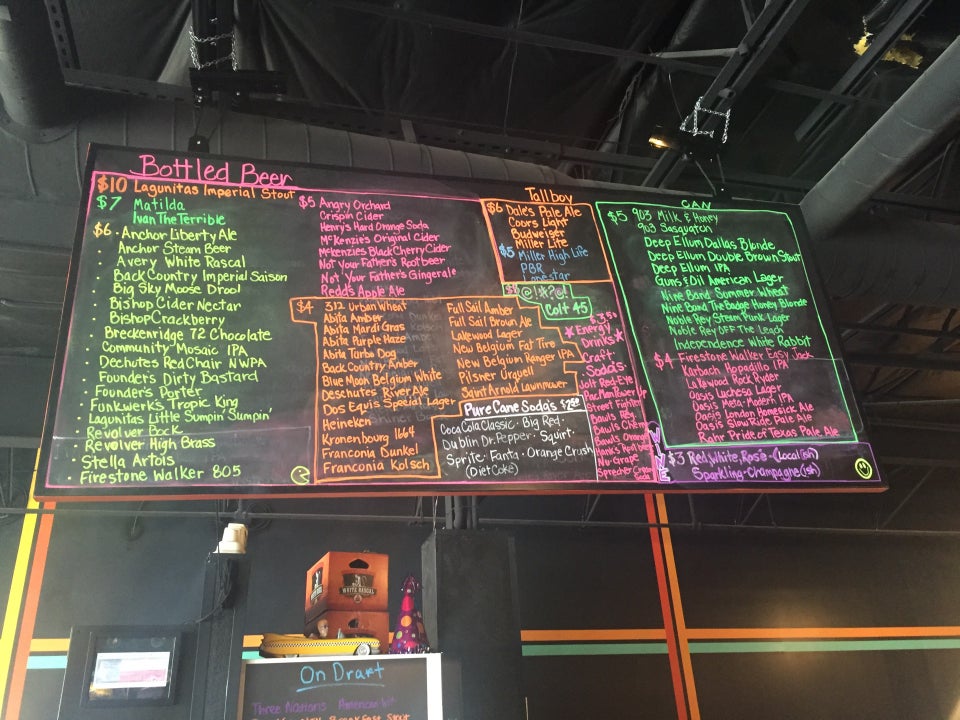 Bottled Beer
$10 Lagunitas Imperial Stout
$7 Matilda
Ivan The Terrible
$6 · Anchor Liberty Ale
· Anchor Steam Beer
· Avery White Rascal
· Back Country Imperial Saison
· Big Sky Moose Drool
· Bishop Cider Nectar
· Bishop Crackberry
· Breckenridge 72 Chocolate
· Community Mosaic IPA
· Dechutes Red Chair NWPA
· Founder's Dirty Bastard
· Founder's Porter
· Funkwerks Tropic King
· Lagunitas Little Sumpin' Sumpin'
· Revolver Bock
· Revolver High Brass
· Stella Artois
· Firestone Walker 805
$5 Angry Orchard
Crispin Cider
Henry's Hard Orange Soda
McKenzie's Original Cider
McKenzies Black Cherry Cider
Not Your Father's Rootbeer
Not Your Father's Gingerale
Redd's Apple Ale
$4 312 Urban Wheat
Abita Amber
Abita Mardi Gras
Abita Purple Haze
Abita Turbo Dog
Back Country Amber
Blue Moon Belgium White
Deschutes River Ale
Dos Equis Special Lager
Heineken
Kronenbourg 1664
Franconia Dunkel
Franconia Kolsch
Full Sail Amber
Full Sail Brown Ale
Lakewood Lager
New Belgium Fat Tire
New Belgium Ranger IPA
Pilsner Urquell
Saint Arnold Lawnmower
Pure Cane Soda's $2.50
Coca Cola Classic · Big Red ·
Dublin Dr. Pepper · Squirt ·
Sprite · Fanta · Orange Crush
(Diet Coke)
Tallboy
$6 Dale's Pale Ale
Coors Light
Budweiser
Miller Lite
$5 Miller High Life
PBR
Lonestar
@!*?@!
Colt 45
$3.50
*Energy
Drinks*
Craft
Soda's
Jolt Red-Eye
Pac Man Power Up
Street Fighter
Bawls Orange
Nu-Grape
Sprecher Cream
Soda
CAN
$5 903 Milk & Honey
903 Sasquatch
Deep Ellum Dallas Blonde
Deep Ellum Double Brown Stout
Deep Ellum IPA
Guns & Oil American Lager
Nine Band Summer Wheat
Nine Band The Badge Honey Blonde
Noble Rey Steam Punk Lager
Noble Rey OFF The Leash
Independence White Rabbit
$4 Firestone Walker Easy Jack
Karbach Hopadillo IPA
Lakewood Rock Ryder
Oasis Luchesa Lager
Oasis Meta-Modern IPA
Oasis London Homesick Ale
Oasis Slow Ride Pale Ale
Rahr Pride of Texas Pale Ale
WINE
$3 Red, White, Rosé - (Local(ish)
Sparkling - Champagne(ish)
WHITE RASCAL
On Draft
Three Nations American
Breakfast Stout